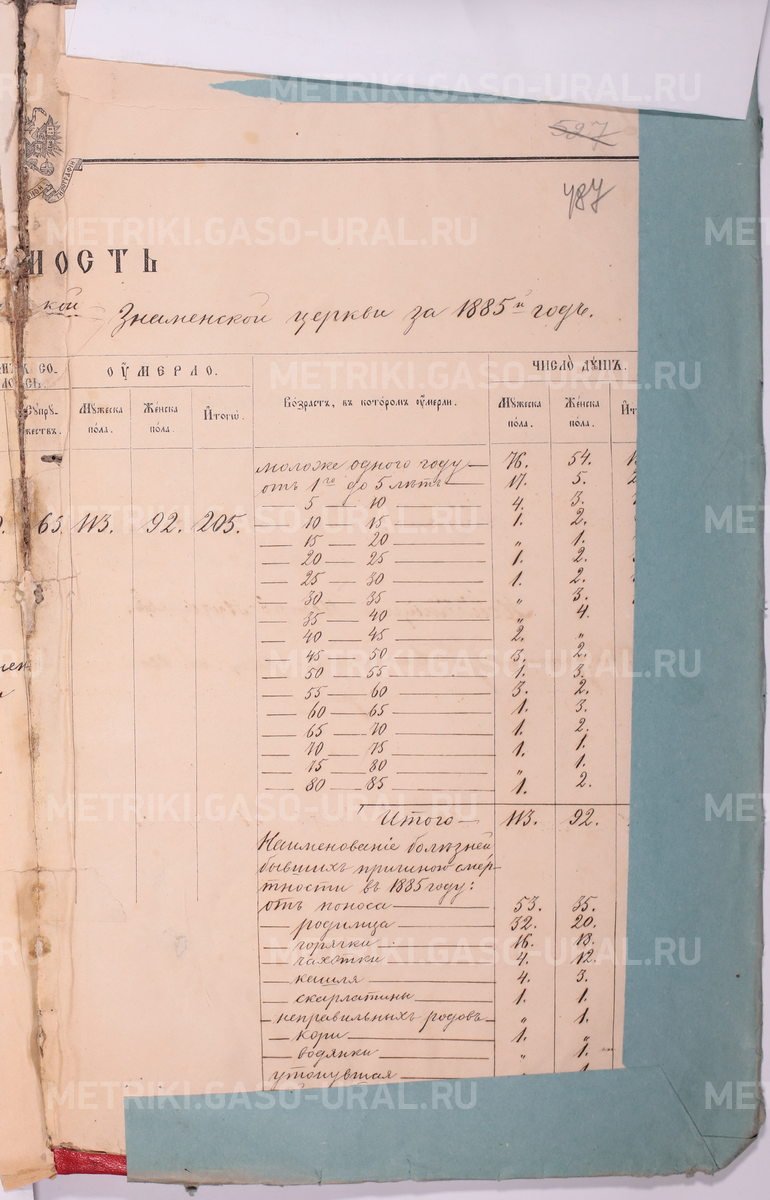 METRIKI.GASO-URAL.RU
527
487
МОСТЬ
кой Знаменской церкви за 1885й годъ.
ОУМЕРЛО.
ЧИСЛО ДУШЪ.
СУПРУ-
ЖЕСТВЪ.
Мужеска пола.
Женска пола.
Итого.
Возрастъ, въ которомъ оумерли.
Мужеска пола.
Женска пола.
65. 113. 92. 205.
моложе одного году 76. 54.
отъ 1го до 5 лѣтъ 17. 5.
5 10 4. 3.
10 15 1. 2.
15 20 „ 1.
20 25 1. 2.
25 30 1. 2.
30 35 „ 3.
35 40 „ 4.
40 45 2. „
45 50 3. 2.
50 55 1. 3.
55 60 3. 2.
60 65 1. 3.
65 70 1. 2.
70 75 1. 1.
75 80 „ 1.
80 85 1. 2.
Итого 113. 92.
Наименованіе болѣзней
бывшихъ причиною смер-
тности въ 1885 году:
отъ поноса 53. 35.
родимца 32. 20.
горячки 16. 13.
чахотки 4. 12.
кашля 4. 3.
скарлатины 1. 1.
неправильныхъ родовъ „ 1.
кори 1. „
водянки „ 1.
утонувшая 1